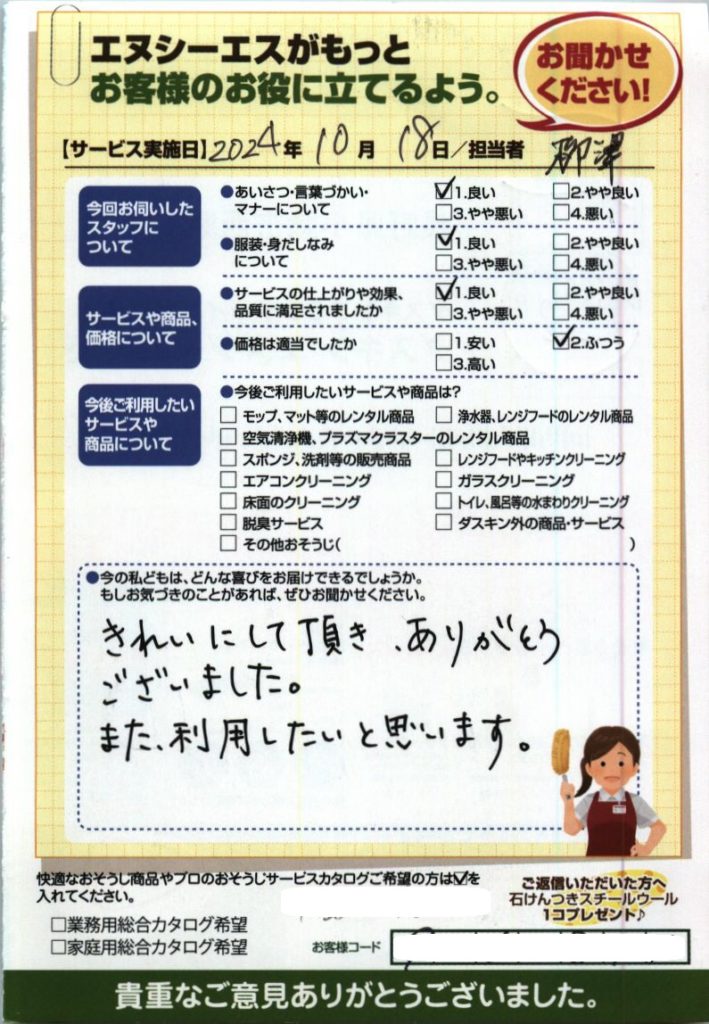 エヌシーエスがもっと
お客様のお役に立てるよう。
お聞かせ
ください!
【サービス実施日】2024年 10月 18日/担当者 柳澤
今回お伺いした
スタッフに
ついて
●あいさつ・言葉づかい・
マナーについて
☑1.良い □2.やや良い
□3.やや悪い □4.悪い
●服装・身だしなみ
について
☑1.良い □2.やや良い
□3.やや悪い □4.悪い
サービスや商品、
価格について
●サービスの仕上がりや効果、
品質に満足されましたか
☑1.良い □2.やや良い
□3.やや悪い □4.悪い
●価格は適当でしたか
□1.安い ☑2.ふつう
□3.高い
今後ご利用したい
サービスや
商品について
●今後ご利用したいサービスや商品は?
□ モップ、マット等のレンタル商品 □ 浄水器、レンジフードのレンタル商品
□ 空気清浄機、プラズマクラスターのレンタル商品
□ スポンジ、洗剤等の販売商品 □ レンジフードやキッチンクリーニング
□ エアコンクリーニング □ ガラスクリーニング
□ 床面のクリーニング □ トイレ、風呂等の水まわりクリーニング
□ 脱臭サービス □ ダスキン外の商品・サービス
□ その他おそうじ( )
●今の私どもは、どんな喜びをお届けできるでしょうか。
もしお気づきのことがあれば、ぜひお聞かせください。
きれいにして頂き、ありがとう
ございました。
また、利用したいと思います。
快適なおそうじ商品やプロのおそうじサービスカタログご希望の方は☑を
入れてください。
□業務用総合カタログ希望
□家庭用総合カタログ希望
ご返信いただいた方へ
石けんつきスチールウール
1コプレゼント♪
お客様コード
貴重なご意見ありがとうございました。